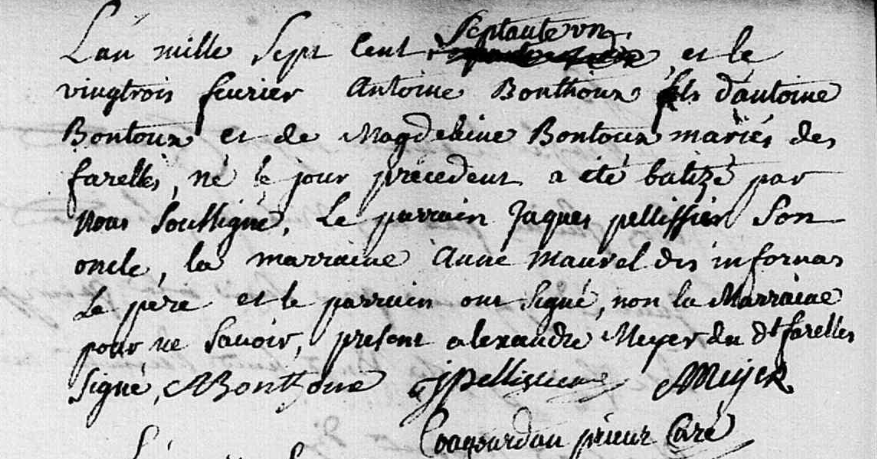 L'an mille Sept Cent Septante un, et le
vingtrois fevrier Antoine Bonthoux fils d'antoine
Bontoux et de Magdeleine Bontoux mariés des
farelles, né le jour précedent a été batizé par
Nous Soussigné, Le parrain Jaques pellissier Son
oncle, la marraine Anne Maurel des infornas
Le père et le parrain ont Signé, non la Marraine
pour ne Savoir, présent alexandre Meyer du dt farelles
Signé, ABonthoux jpellissier AMeyer
prieur Curé